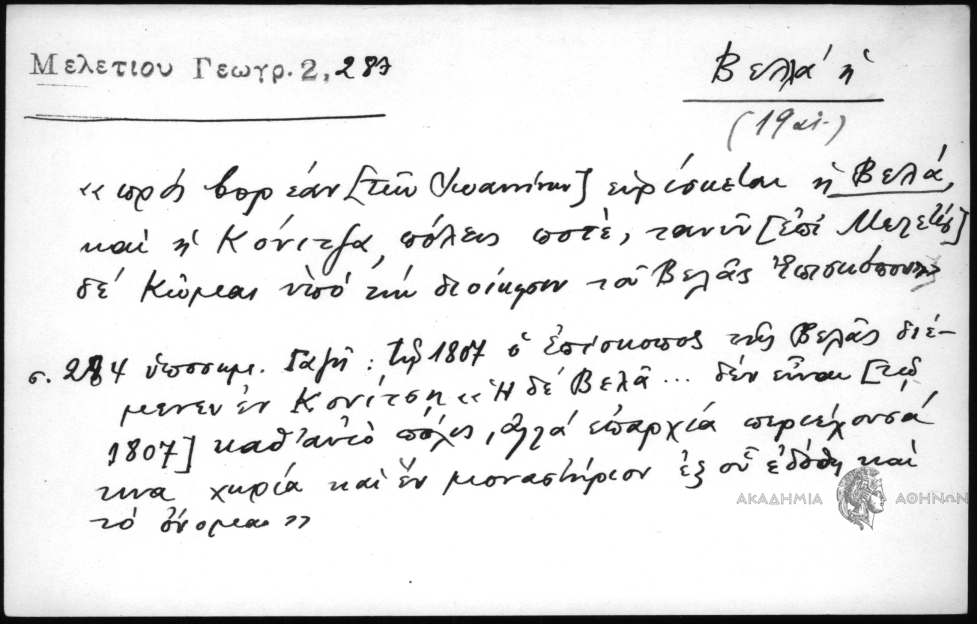 Μελετίου Γεωγρ. 2, 287
Βελλά ἡ
(19 αἰ.)
«πρὸς βορρᾶν [τῶν Ἰωαννίνων] εὑρίσκεται ἡ Βελά,
καὶ ἡ Κόνιτζα, πόλεις ποτὲ, τανῦν [ἐπὶ Μελετίου]
δὲ Κῶμαι ὑπὸ τὴν διοίκησιν τοῦ Βελᾶς Ἐπισκόπου»
σ. 284 ὑποσημ. Γαζῆ : τῷ 1807 ὁ ἐπίσκοπος τῆς Βελᾶς διέ-
μενεν ἐν Κονίτσῃ «Ἡ δὲ Βελᾶ ... δὲν εἶναι [τῷ
1807] καθ' αὑτὸ πόλις, ἀλλὰ ἐπαρχία περιέχουσά
τινα χωρία καὶ ἓν μοναστήριον ἐξ οὗ ἐδόθη καὶ
τὸ ὄνομα»
ΑΚΑΔΗΜΙΑ ΑΘΗΝΩΝ